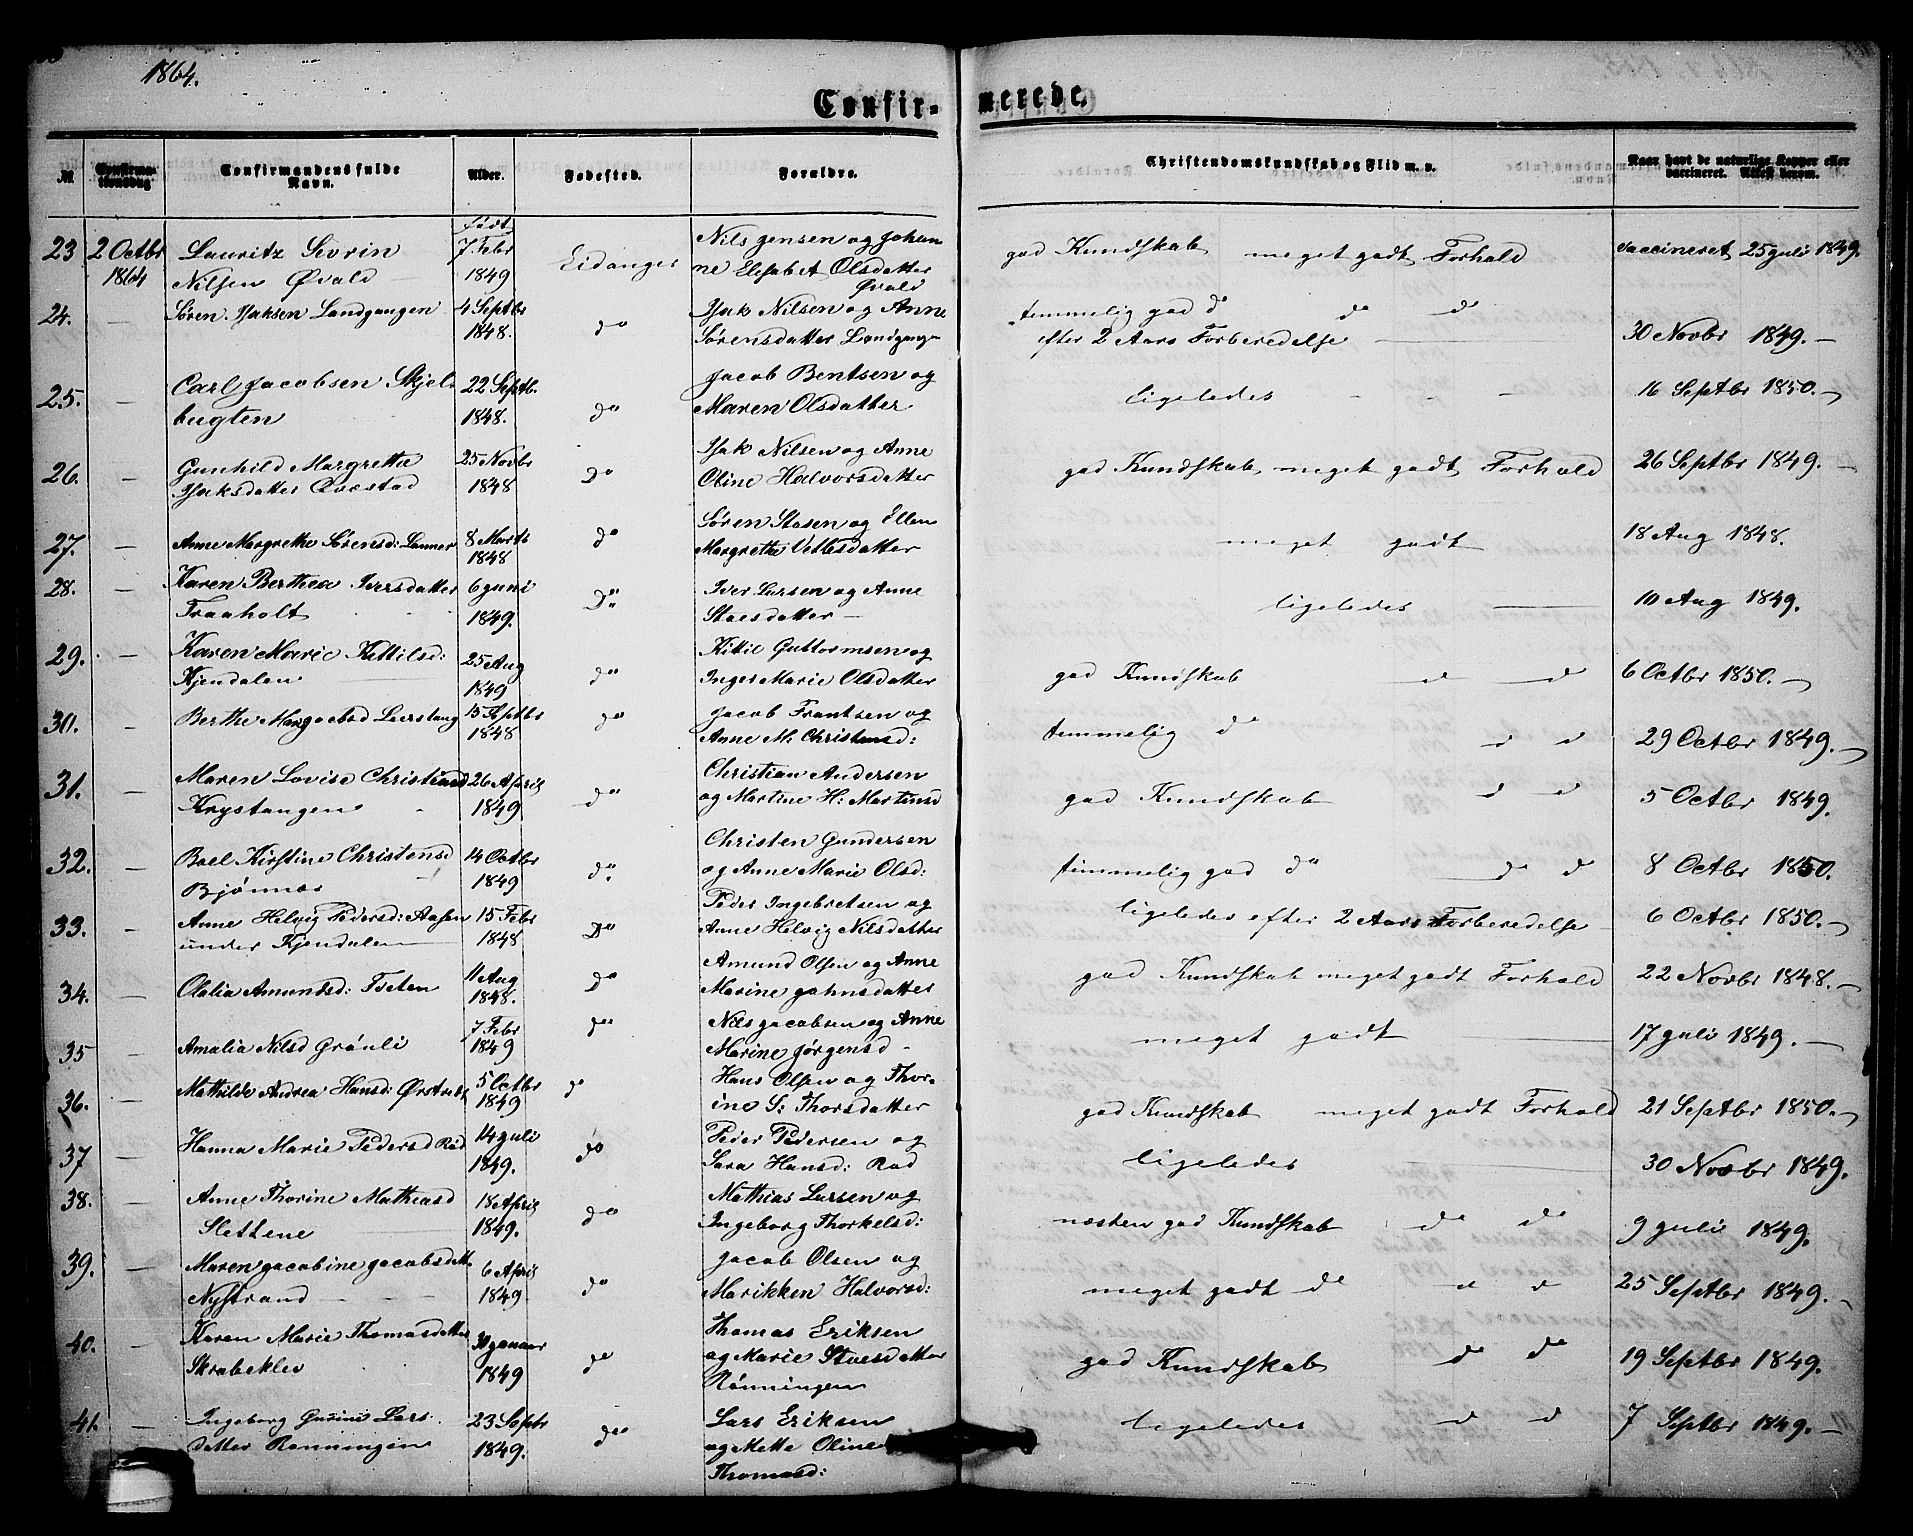 1864.
Confirmerede.
№ Confirmationsdag Confirmandens fulde Navn. Alder. Fødested. Forældre. Christendomskundskab og Flid m. v. Naar havt de naturlige Kopper eller vaccineret. Attest derom.
født
23 2 Octbr 1864 Lauritz Sevrin Nilsen Øvald 7 Febr 1849 Eidanger Nils Jensen og Johanne Elisabet Olsdatter Øvald god Kundskab meget godt Forhold vaccineret 25 Juli 1849.
24. — Søren Isaksen Landgangen 4 Septbr 1848. do Isak Nilsen og Anne Sørensdatter Landgang temmelig god do do do efter 2 Aars Forberedelse — 30 Novbr 1849. —
25. — Carl Jacobsen Skjelbugten 22 Septb. 1848. do Jacob Bentsen og Maren Olsdatter ligeledes - - - 16 Septbr 1850. —
26. — Gunhild Margrethe Isaksdatter Øvestad 25 Novbr 1848 do Isak Nilsen og Anne Oline Halvorsdatter god Kundskab meget godt Forhold 26 Septbr 1849. —
27. — Anne Margrethe Sørensd: Lanner 8 Marts 1848 do Søren Stasen og Ellen Margrethe Vetlesdatter meget godt 18 Aug 1848.
28. — Karen Berthea Iversdatter Traaholt 6 Juni 1849. Do: Iver Larsen og Anne Staesdatter — ligeledes — 10 Aug 1849.
29. — Karen Marie Kittilsd: Kjendalen 25 Aug 1849 do Kittil Guttormsen og Inger Marie Olsdatter god Kundskab do do 6 Octbr 1850. —
30. — Berthe Jacobsd Leerstang 15 Septbr 1848 do Jacob Frantsen og Anne M. Christensd: temmelig do do do 29 Octbr 1849. —
31. — Maren Lovise Christiansd Krystangen 26 April 1849 do Christian Andersen og Martine H: Martinsd god Kundskab do do 5 Octbr 1849.
32. — Boel Kirstine Christensd Bjønnes 14 Octbr 1849 do. Christen Gundersen og Anne Marie Olsd: temmelig god do do do 8 Octbr 1850.
33. — Anne Helvig Pedersd: Aasen under Kjendalen 15 Febr 1848 Do Peder Ingebretsen og Anne Helvig Nilsdatter ligeledes efter 2 Aars Forberedelse — 6 Octbr 1850. —
34. — Olalia Amundsd: Tveten 11 Aug 1848. do Amund Olsen og Anne Marine Johnsdatter god Kundskab meget godt Forhold 22 Novbr 1848. —
35 — Amalia Nilsd Grønli 7 Febr 1849 do Nils Jacobsen og Anne Marine Jørgensd - meget godt — 17 Juli 1849. —
36. — Mathilde Andrea Hansd: Ørstvedt 5 Octbr 1849 do Hans Olsen og Thorine S: Thorsdatter god Kundskab meget godt Forhold 21 Septbr 1850. —
37 — Hanna Marie Pedersd Rød 14 Juli 1849. do Peder Pedersen og Sara Hansd: Rød ligeledes 30 Novbr 1849.
38. — Anne Thorine Mathiasd Slettene 18 April 1849. do Mathias Larsen og Ingeborg Thorkelsd: næsten god Kundskab do do 9 Juli 1849.
39. — Maren Jacobine Jacobsdatt. Nystrand 6 April 1849 do Jacob Olsen og Marikken Halvorsd: meget godt do do do 25 Septbr 1849. —
40. — Karen Marie Thomasdatter Skrabeklev Januar 1849 do Thomas Eriksen og Marie Stoesdatter Rønningen god Kundskab do do 19 Septbr 1849.
41. — Ingeborg Gusine Larsdatter Rønningen 23 Septr 1849. do Lars Eriksen og Mette Oline Thomasd: ligeledes do do 7 Septbr 1849. —